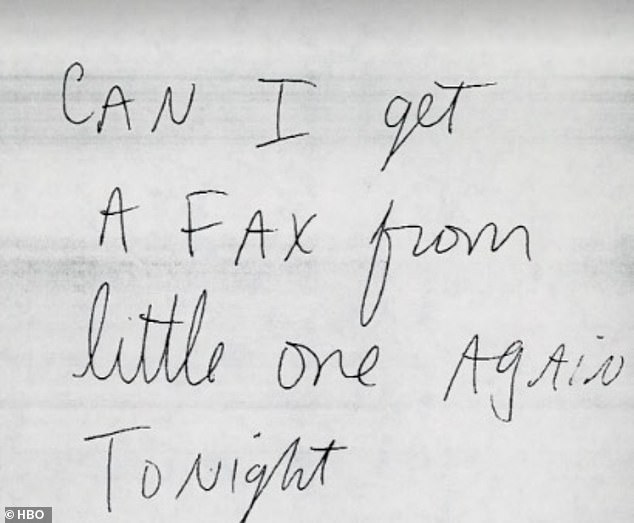 CAN I get
A FAX from
little one AgAiN
TONight
© HBO